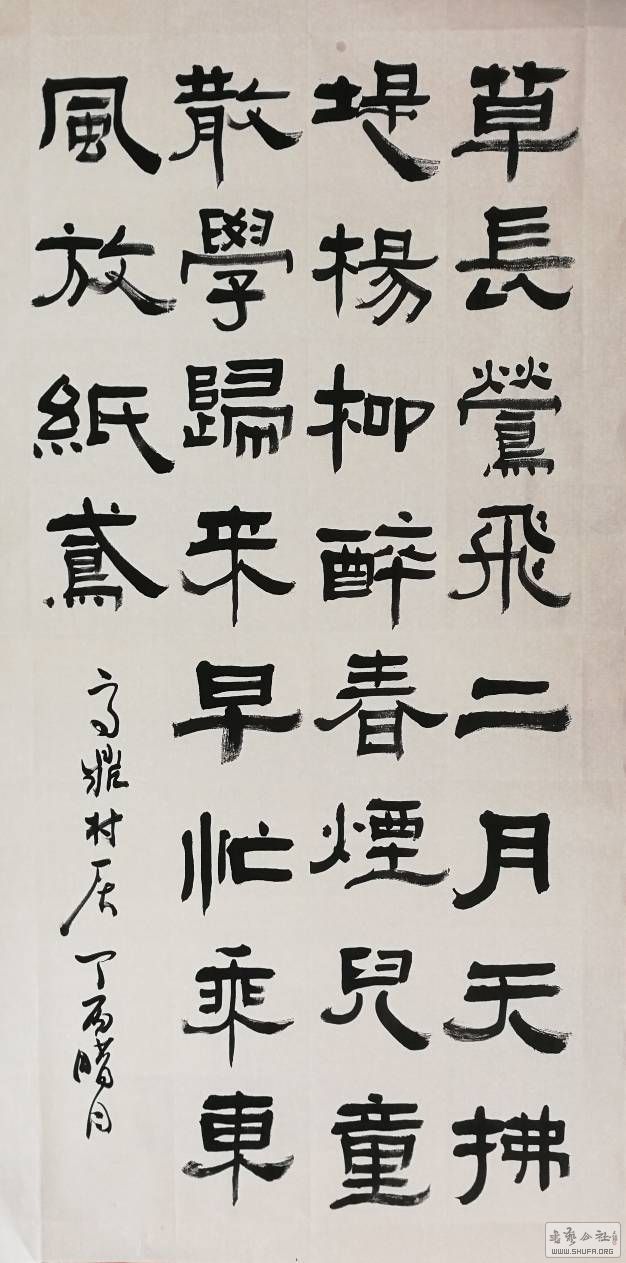 草長鶯飛二月天拂
堤楊柳醉春煙兒童
散學歸來早忙乘東
風放紙鳶
高鼎村居 丁酉腊月
书艺公社
WWW.SHUFA.ORG